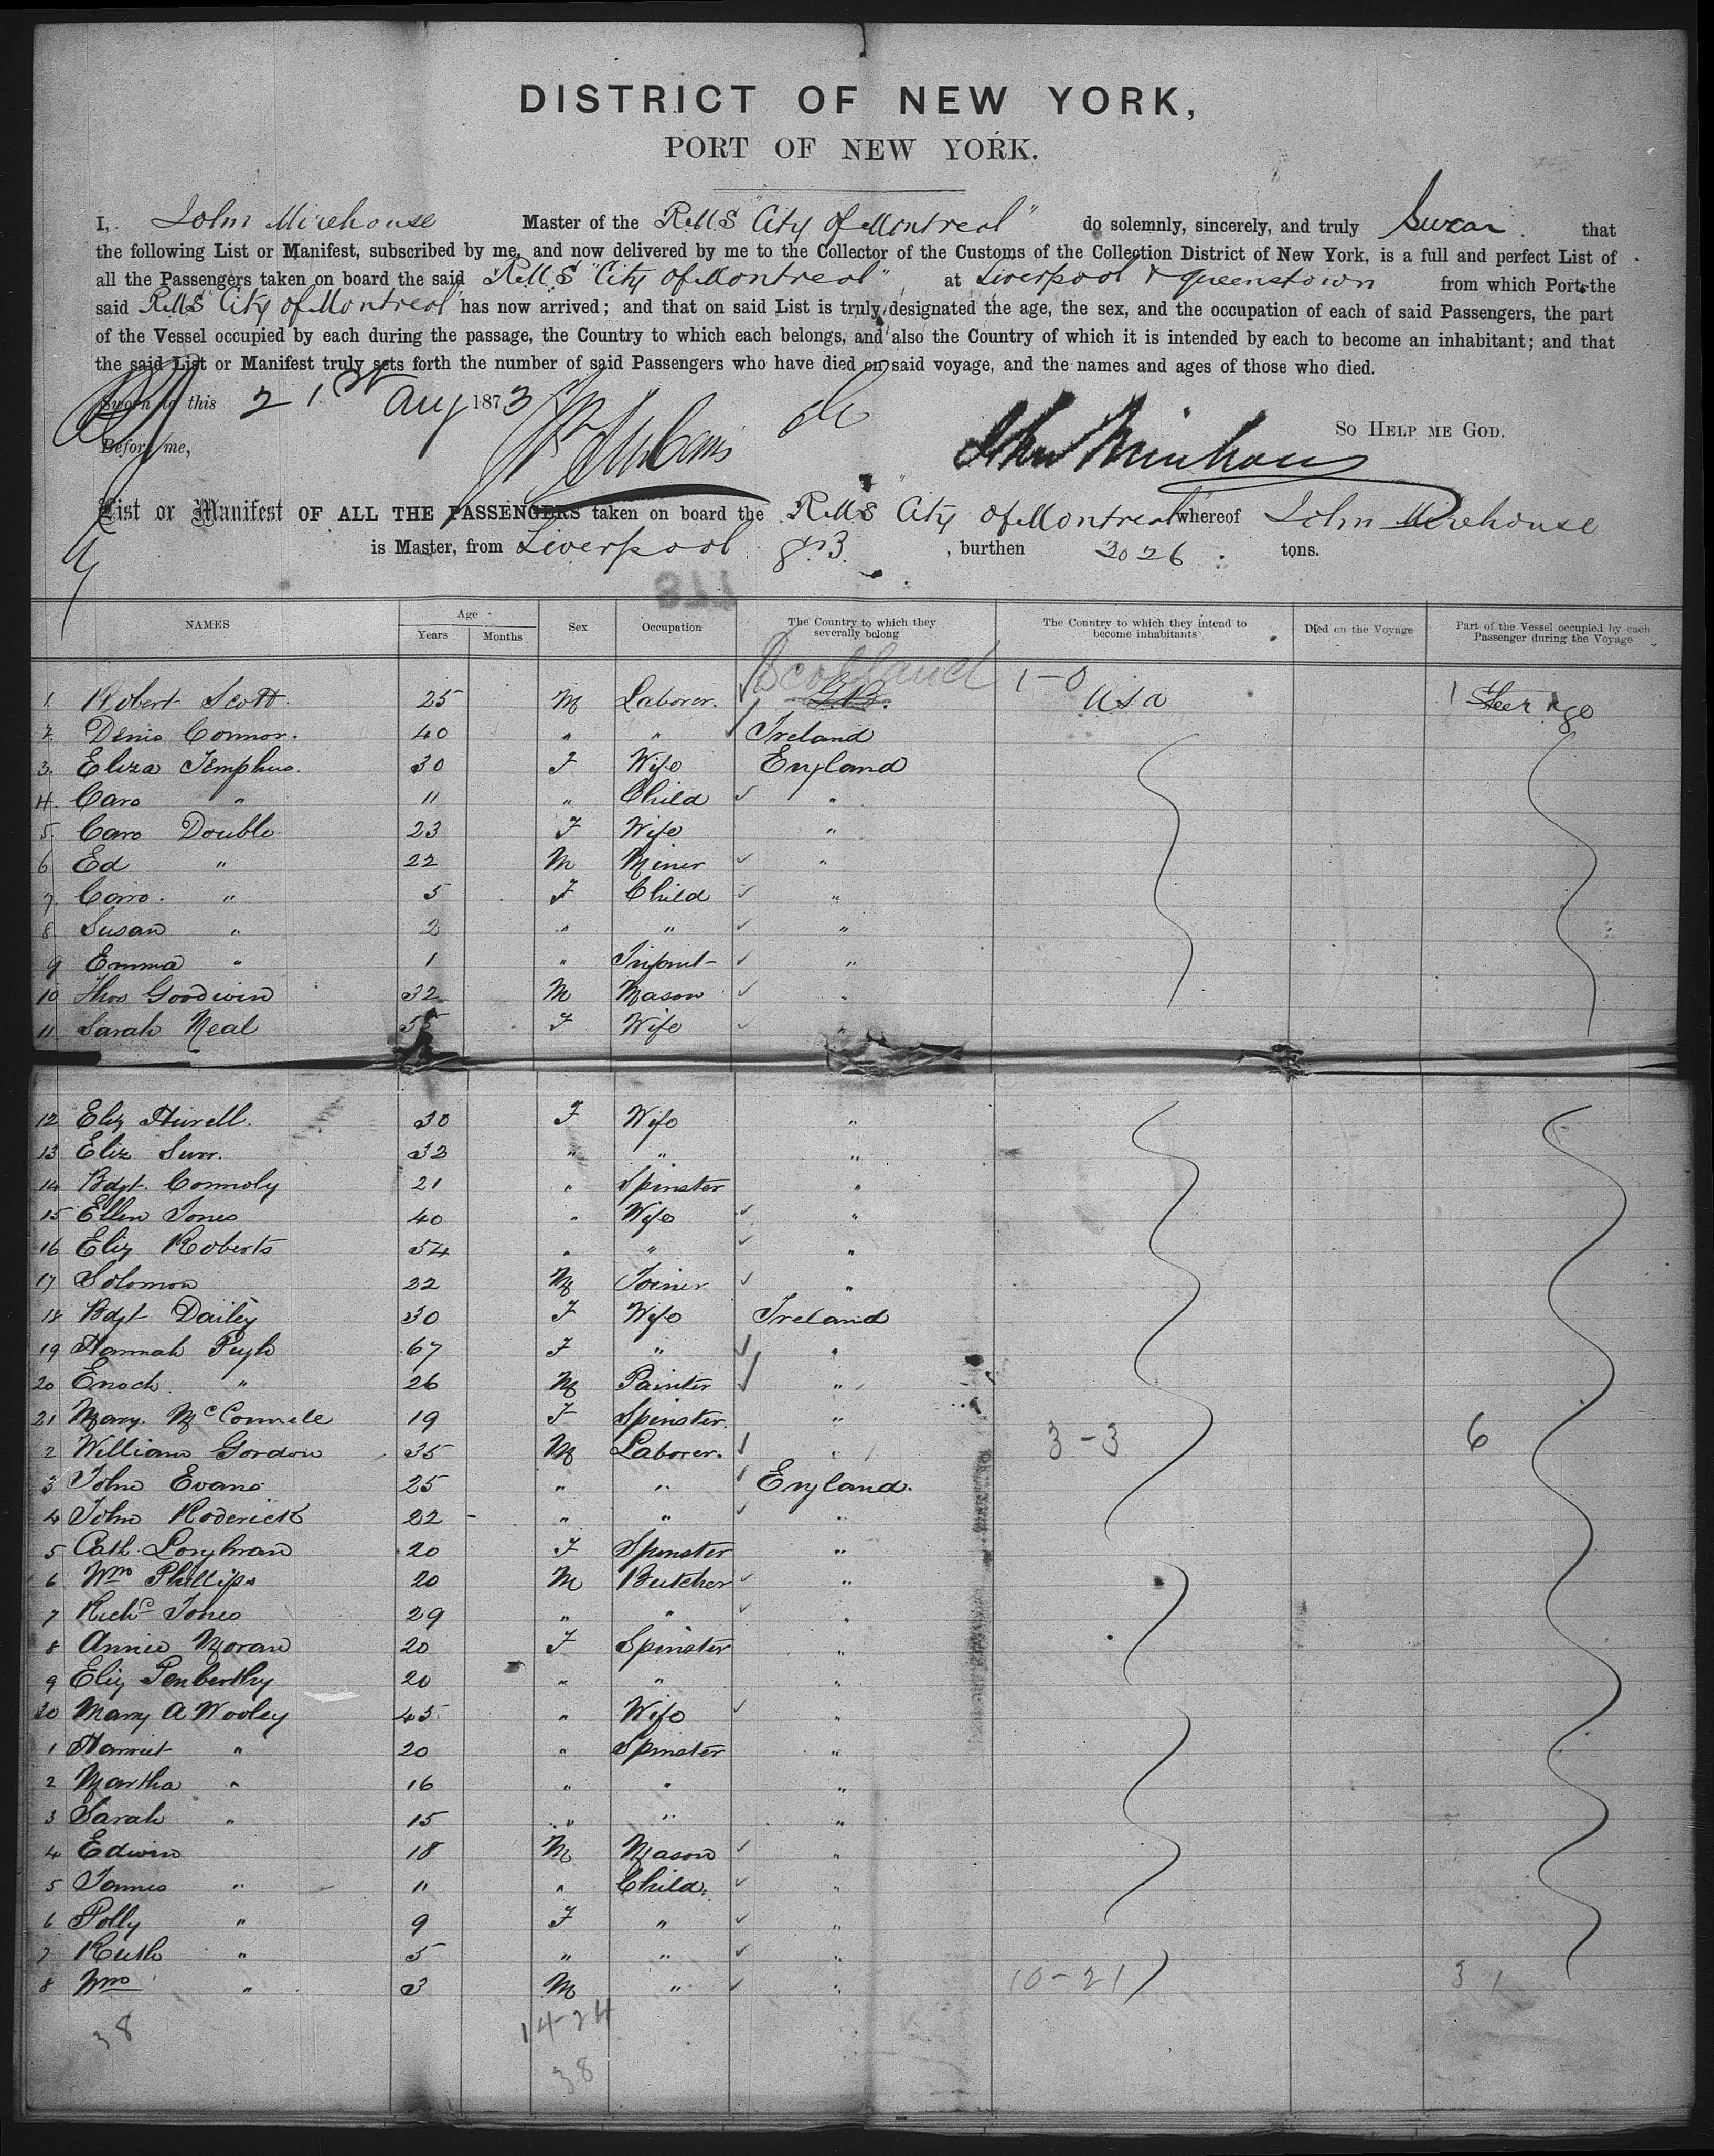 DISTRICT OF NEW YORK,
PORT OF NEW YORK.
I, John Mirehouse Master of the R.M.S "City of Montreal" do solemnly, sincerely, and truly Swear that
the following List or Manifest, subscribed by me, and now delivered by me to the Collector of the Customs of the Collection District of New York, is a full and perfect List of
all the Passengers taken on board the said R.M.S "City of Montreal", at Liverpool & Queenstown from which Port the
said R.M.S "City of Montreal" has now arrived; and that on said List is truly designated the age, the sex, and the occupation of each of said Passengers, the part
of the Vessel occupied by each during the passage, the Country to which each belongs, and also the Country of which it is intended by each to become an inhabitant; and that
the said List or Manifest truly sets forth the number of said Passengers who have died on said voyage, and the names and ages of those who died.
Sworn to this 21st Aug 1873
So Help me God.
Before me, John Mirehouse
List or Manifest OF ALL THE PASSENGERS taken on board the R.M.S City of Montreal whereof John Mirehouse
is Master, from Liverpool , burthen 3026 tons.
NAMES Age Years Months Sex Occupation The Country to which they severally belong The Country to which they intend to become inhabitants Died on the Voyage Part of the Vessel occupied by each Passenger during the Voyage
Scotland 1-0
1 Robert Scott. 25 M Laborer. G.B. USA 1 Steerage
2. Denis Connor. 40 " " Ireland
3. Eliza Jemphus. 30 F Wife England
4. Caro " 11 " Child "
5. Caro Double 23 F Wife "
6 Ed " 22 M Miner "
7 Caro. " 5 F Child "
8 Susan " 2 " " "
9 Emma " 1 " Infant "
10 Thos Goodwin 32 M Mason "
11 Sarah Neal 55 F Wife "
12 Eliz Hurell. 30 F Wife "
13 Eliz Surr. 32 " " "
14 Bdgt. Connoly 21 " Spinster "
15 Ellen Jones 40 " Wife "
16 Eliz Roberts 54 " " "
17 Solomon 22 M Joiner "
18 Bdgt Dailey 30 F Wife Ireland
19 Hannah Pugh 67 F " "
20 Enoch " 26 M Painter "
21 Mary McConnele 19 F Spinster. "
2 William Gordon 35 M Laborer. " 3-3 6
3 John Evans 25 " " England.
4 John Roderick 22 " " "
5 Cath Loughran 20 F Spinster "
6 Wm Phillips 20 M Butcher "
7 Richd Jones 29 " " "
8 Annie Moran 20 F Spinster "
9 Eliz Penberthy 20 " " "
30 Mary A Wooley 45 " Wife "
1 Harriet " 20 " Spinster "
2 Martha " 16 " " "
3 Sarah " 15 " " "
4 Edwin 18 M Mason "
5 James " 11 " Child. "
6 Polly " 9 F " "
7 Ruth " 5 " " "
8 Wm " 3 M " " 10-21 31
38 14-24
38